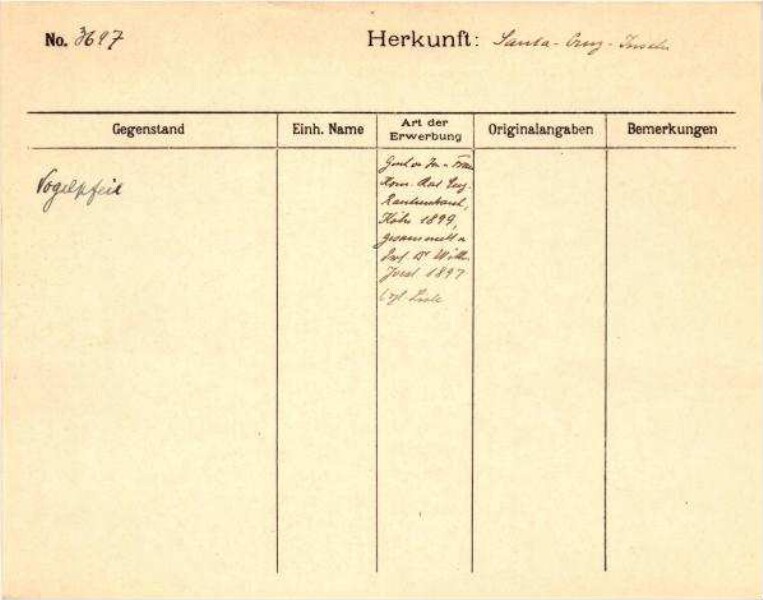 No. 3697
Herkunft: Santa-Cruz-Inseln
Gegenstand
Einh. Name
Art der
Erwerbung
Originalangaben
Bemerkungen
Vogelpfeil
Gesch. v. Frau
Kom. Rat Eug.
Rautenstrauch,
Köln 1899,
gesammelt v.
Prof. Dr Wilh.
Joest 1897